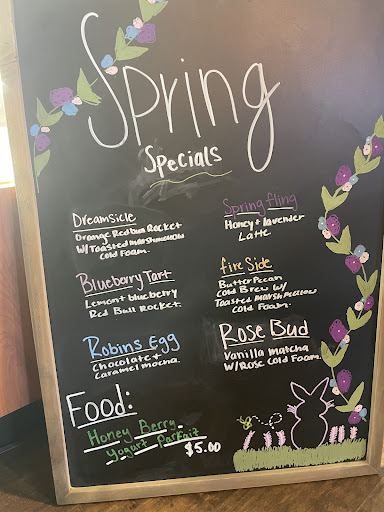 Spring
Specials
Dreamsicle
Orange Redbull Rocket
W/ Toasted Marshmellow
Cold Foam.
Blueberry Tart
Lemon + blueberry
Red Bull Rocket.
Robins Egg
Chocolate +
Caramel mocha.
Spring fling
Honey + lavender
Latte
Fire Side
Butter Pecan
Cold Brew W/
Toasted Marshmellow
Cold Foam.
Rose Bud
Vanilla matcha
W/ Rose Cold Foam.
Food:
Honey Berry
Yogurt Parfait
$5.00